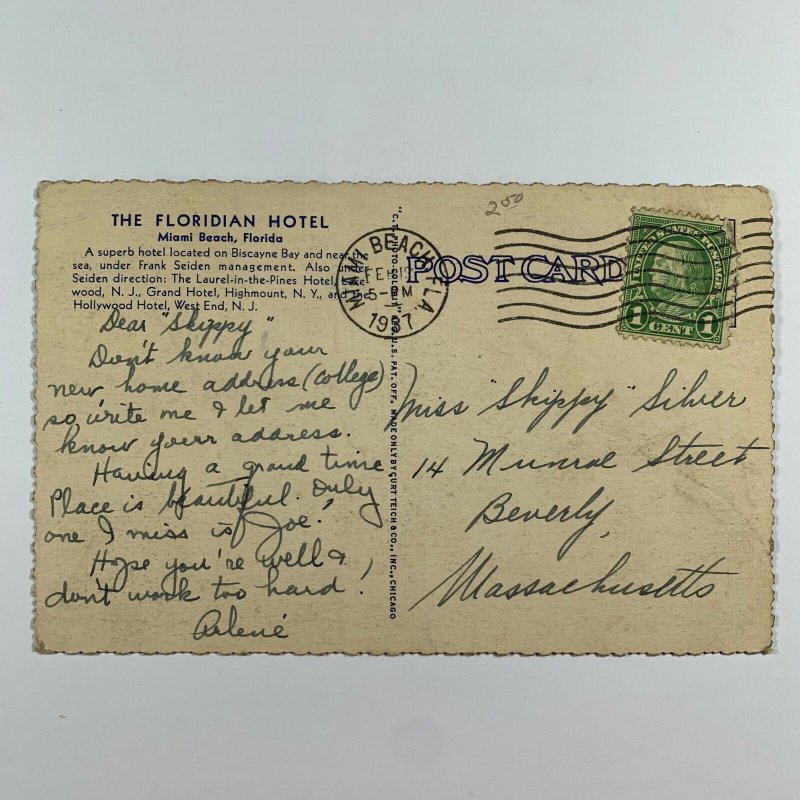 THE FLORIDIAN HOTEL
Miami Beach, Florida
A superb hotel located on Biscayne Bay and near the
sea, under Frank Seiden management. Also under
Seiden direction: The Laurel-in-the-Pines Hotel,
wood, N. J., Grand Hotel, Highmount, N. Y., and the
Hollywood Hotel, West End, N. J.
Dear "Skippy"
Don't know your
new home address (College)
so, write me & let me
know your address.
Having a grand time
Place is beautiful. Only
one I miss is Joe!
Hope you're well &
don't work too hard!
Arlene
"C. T. PHOTO-COLORIT" REG. U. S. PAT. OFF. MADE ONLY BY CURT TEICH & CO., INC., CHICAGO
MIAMI BEACH FLA
FEB 19
5-PM
1937
POST CARD
200
1 CENT 1
Miss "Skippy" Silver
14 Munroe Street
Beverly,
Massachusetts